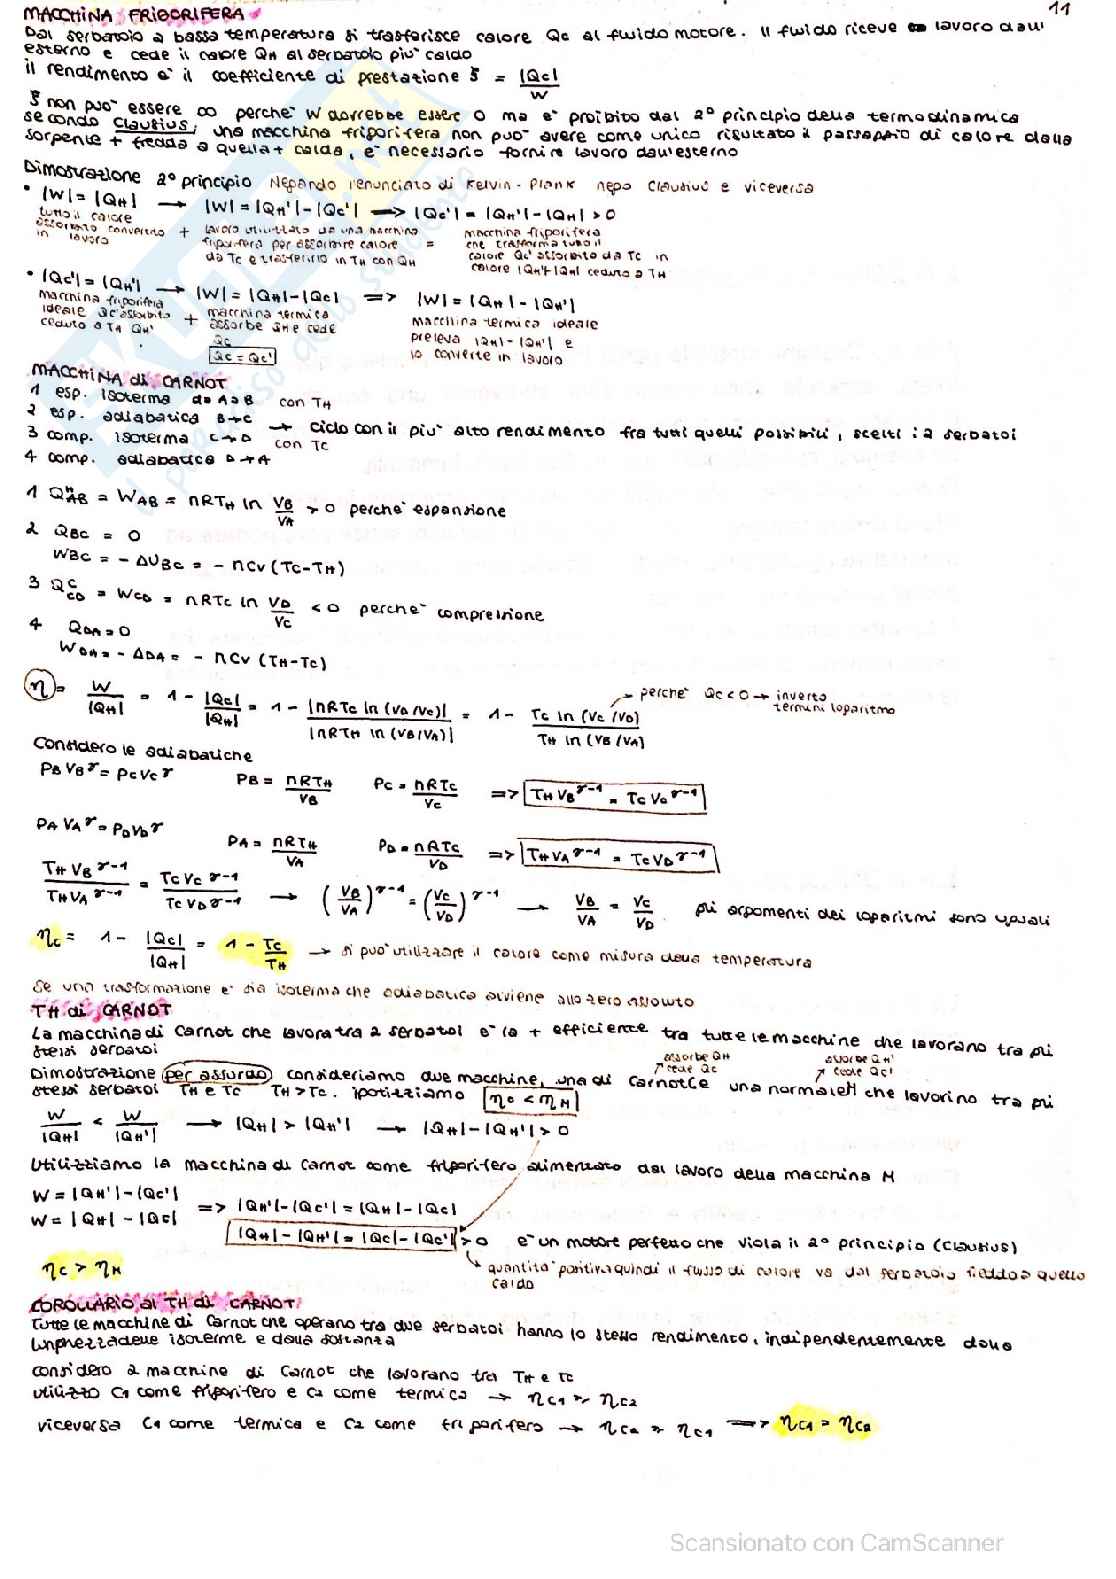 11
MACCHINA FRIGORIFERA
Dal serbatoio a bassa temperatura si trasferisce calore Qc al fluido motore. Il fluido riceve lavoro dall'
esterno e cede il calore QH al serbatoio più caldo
il rendimento è il coefficiente di prestazione ξ = |Qc|/W
ξ non può essere ∞ perchè W dovrebbe essere 0 ma è proibito dal 2° principio della termodinamica
secondo Clausius, una macchina frigorifera non può avere come unico risultato il passaggio di calore dalla
sorgente + fredda a quella + calda, è necessario fornire lavoro dall'esterno
Dimostrazione 2° principio Negando l'enunciato di Kelvin-Plank nego Clausius e viceversa
• |W| = |QH| → |W| = |QH'| - |Qc'| => |Qc'| = |QH'| - |QH| > 0
tutto il calore assorbito convertito in lavoro + lavoro utilizzato da una macchina frigorifera per assorbire calore da Tc e trasferirlo in TH con QH = macchina frigorifera che trasforma tutto il calore Qc' assorbito da Tc in calore |QH'|-|QH| ceduto a TH
• |Qc'| = |QH'| → |W| = |QH| - |Qc| => |W| = |QH| - |QH'|
macchina frigorifera ideale Qc' assorbito ceduto a TH QH' + macchina termica assorbe QH e cede Qc
Qc = Qc'
macchina termica ideale preleva |QH| - |QH'| e lo converte in lavoro
MACCHINA di CARNOT
1 esp. isoterma da A→B con TH
2 esp. adiabatica B→C
3 comp. isoterma C→D con Tc → ciclo con il più alto rendimento fra tutti quelli possibili, scelti i 2 serbatoi
4 comp. adiabatica D→A
1 QAB^H = WAB = nRTH ln VB/VA > 0 perchè espansione
2 QBC = 0
WBC = - ΔUBC = - nCv (Tc-TH)
3 QCD^C = WCD = nRTc ln VD/VC < 0 perchè compressione
4 QDA = 0
WDA = - ΔDA = - nCv (TH-Tc)
η = W/|QH| = 1 - |Qc|/|QH| = 1 - |nRTc ln (VD/VC)|/|nRTH ln (VB/VA)| = 1 - Tc ln (VC/VD)/TH ln (VB/VA) → perchè Qc<0 → inverto termini logaritmo
Considero le adiabatiche
PB VB^γ = PC VC^γ PB = nRTH/VB PC = nRTC/VC => TH VB^γ-1 = TC VC^γ-1
PA VA^γ = PD VD^γ PA = nRTH/VA PD = nRTC/VD => TH VA^γ-1 = TC VD^γ-1
TH VB^γ-1/TH VA^γ-1 = TC VC^γ-1/TC VD^γ-1 → (VB/VA)^γ-1 = (VC/VD)^γ-1 → VB/VA = VC/VD gli argomenti dei logaritmi sono uguali
ηc = 1 - |Qc|/|QH| = 1 - Tc/TH → si può utilizzare il calore come misura della temperatura
Se una trasformazione è sia isoterma che adiabatica avviene allo zero assoluto
TH di CARNOT
La macchina di Carnot che lavora tra 2 serbatoi è la + efficiente tra tutte le macchine che lavorano tra gli
stessi serbatoi
assorbe QH cede Qc
assorbe QH' cede Qc'
Dimostrazione per assurdo consideriamo due macchine, una di Carnot C e una normale M che lavorino tra gli
stessi serbatoi TH e Tc TH > Tc. ipotizziamo ηc < ηM
W/|QH| < W/|QH'| → |QH| > |QH'| → |QH| - |QH'| > 0
Utilizziamo la macchina di Carnot come frigorifero alimentato dal lavoro della macchina M
W = |QH'| - |Qc'|
W = |QH| - |Qc| => |QH'| - |Qc'| = |QH| - |Qc|
|QH| - |QH'| = |Qc| - |Qc'| > 0 è un motore perfetto che viola il 2° principio (Clausius)
ηc > ηM
quantità positiva quindi il flusso di calore va dal serbatoio freddo a quello
caldo
COROLLARIO al TH di CARNOT
Tutte le macchine di Carnot che operano tra due serbatoi hanno lo stesso rendimento, indipendentemente dalla
lunghezza delle isoterme e dalla sostanza
considero 2 macchine di Carnot che lavorano tra TH e Tc
utilizzo C1 come frigorifero e C2 come termica → ηC1 ≥ ηC2
viceversa C1 come termica e C2 come frigorifero → ηC2 ≥ ηC1 => ηC1 = ηC2
Scansionato con CamScanner